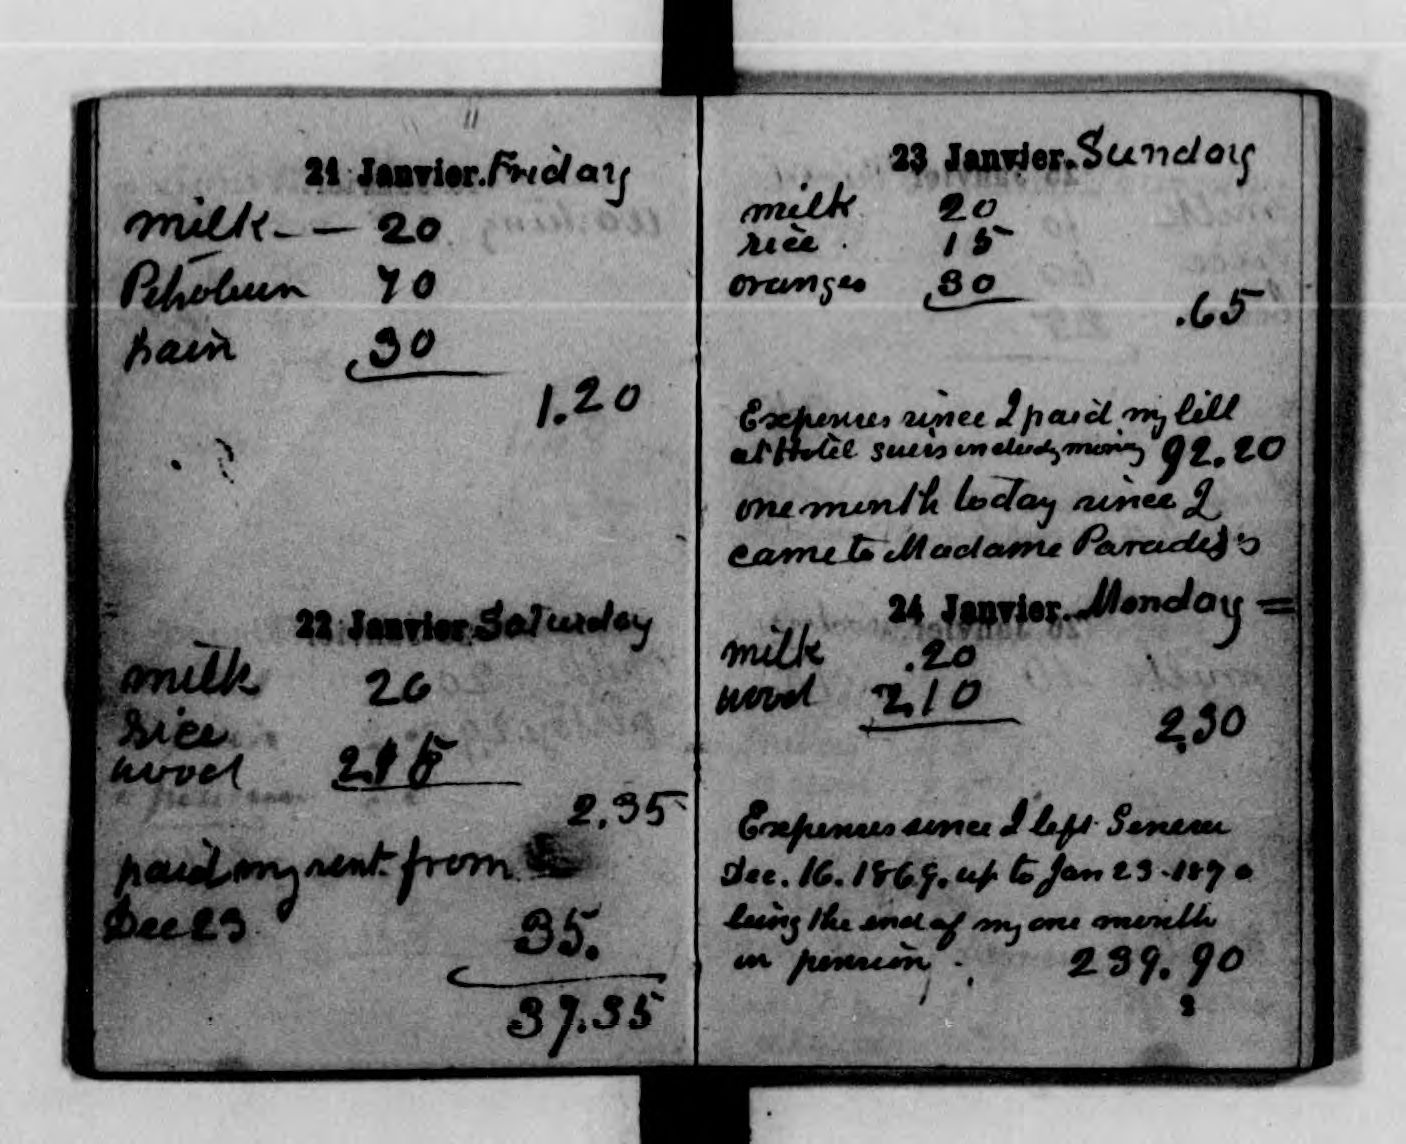 21 Janvier. Friday
milk - - 20
Petroleum 70
pain 30
1.20
22 Janvier Saturday
milk 20
rice
wood 2.15
2.35
paid my rent from
Dec 23 35.
37.35
23 Janvier. Sunday
milk 20
rice . 15
oranges 30
.65
Expenses since I paid my bill
at Hotel including moving 92.20
one month today since I
came to Madame Paradis's
24 Janvier. Monday =
milk .20
wood 2.10
2.30
Expenses since I left Geneva
Dec. 16. 1869. up to Jan 23. 1870
being the end of my one month
in pension . 239.90